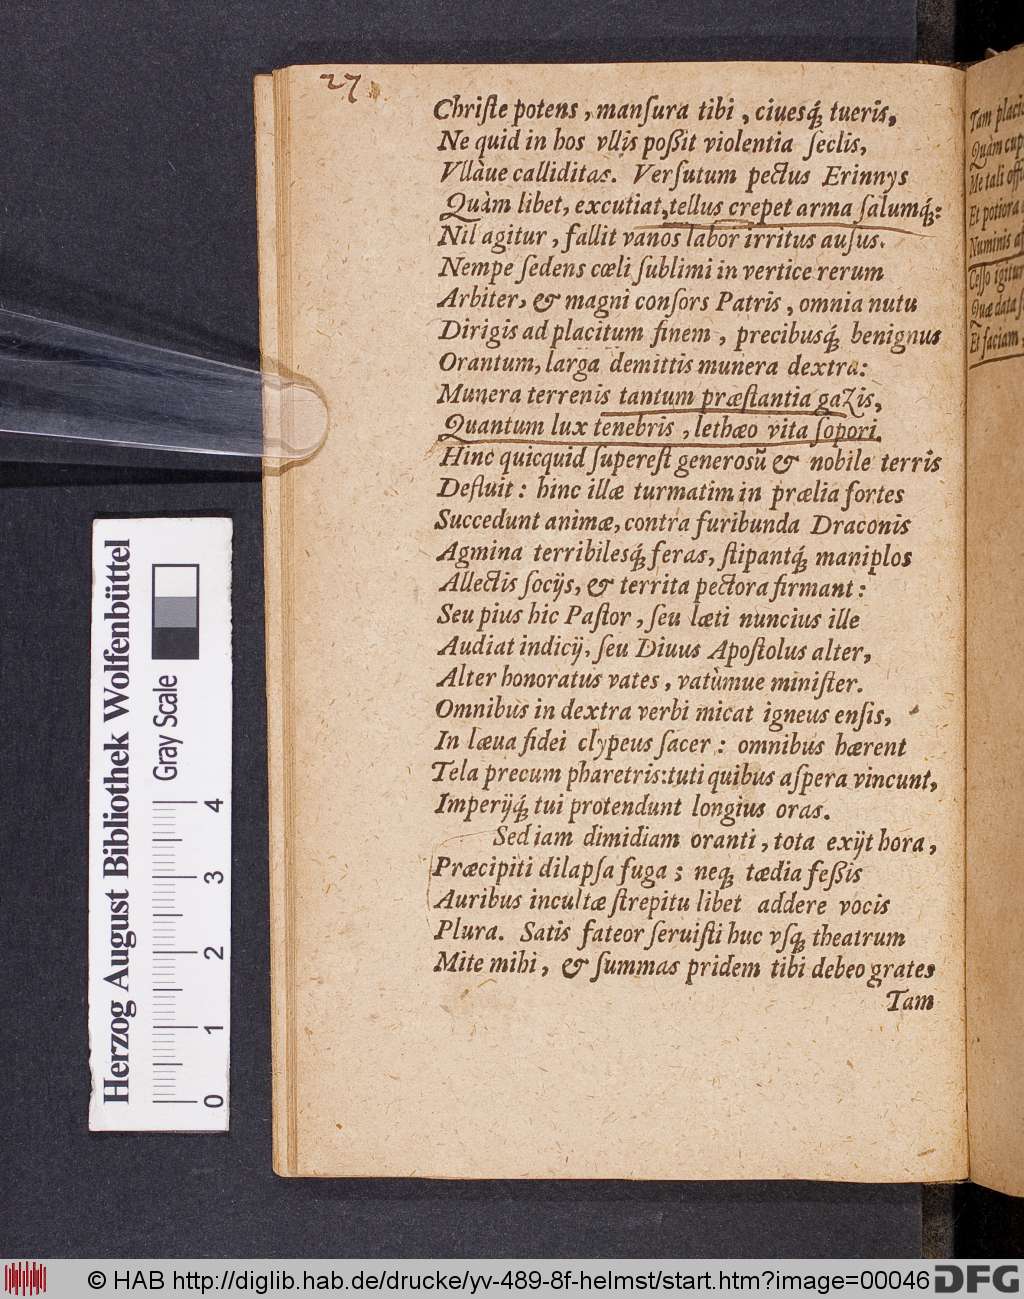 27.
Chriſte potens, manſura tibi, ciuesq́; tueris,
Ne quid in hos vllis poßit violentia ſeclis,
Vllàue calliditas. Verſutum pectus Erinnys
Quàm libet, excutiat, tellus crepet arma ſalumq́;:
Nil agitur, fallit vanos labor irritus auſus.
Nempe ſedens cœli ſublimi in vertice rerum
Arbiter, & magni conſors Patris, omnia nutu
Dirigis ad placitum finem, precibusq́; benignus
Orantum, larga demittis munera dextra:
Munera terrenis tantum præſtantia gazis,
Quantum lux tenebris, lethæo vita ſopori.
Hinc quicquid ſupereſt generosũ & nobile terris
Defluit: hinc illæ turmatim in prælia fortes
Succedunt animæ, contra furibunda Draconis
Agmina terribilesq́; feras, ſtipantq́; maniplos
Allectis ſocijs, & territa pectora firmant:
Seu pius hic Paſtor, ſeu læti nuncius ille
Audiat indicij, ſeu Diuus Apoſtolus alter,
Alter honoratus vates, vatùmue miniſter.
Omnibus in dextra verbi micat igneus enſis,
In læua fidei clypeus ſacer: omnibus hærent
Tela precum pharetris: tuti quibus aſpera vincunt,
Imperijq́; tui protendunt longius oras.
Sed iam dimidiam oranti, tota exijt hora,
Præcipiti dilapſa fuga; neq; tædia feßis
Auribus incultæ ſtrepitu libet addere vocis
Plura. Satis fateor ſeruiſti huc vſq; theatrum
Mite mihi, & ſummas pridem tibi debeo grates
Tam
Tam placi
Quàm cup
Me tali offi
Et potiora
Numinis af
Ceſſo igitur
Quæ data ſ
Et faciam,
Herzog August Bibliothek Wolfenbüttel
Gray Scale
0 1 2 3 4
© HAB http://diglib.hab.de/drucke/yv-489-8f-helmst/start.htm?image=00046
DFG